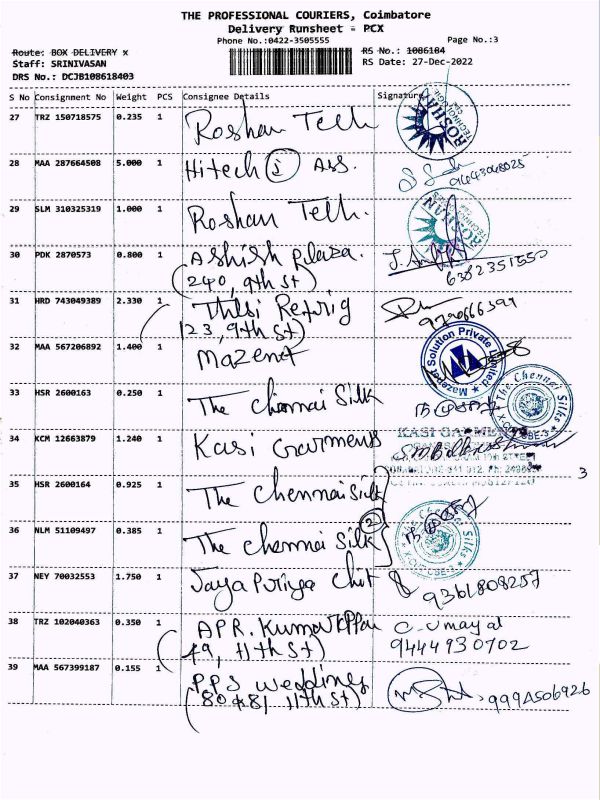 THE PROFESSIONAL COURIERS, Coimbatore
Delivery Runsheet - PCX
Phone No.:0422-3505555
Page No.:3
Route: BOX DELIVERY x
RS No.: 1086184
Staff: SRINIVASAN
RS Date: 27-Dec-2022
DRS No.: DCJB108618403
S No Consignment No Weight PCS Consignee Details Signature
27 TRZ 150718575 0.235 1 Roshan Tech ROSHAN
28 MAA 287664508 5.000 1 Hitech Ass.
29 SLM 310325319 1.000 1 Roshan Tech. ROSHAN
30 PDK 2870573 0.800 1 Ashish plaza.
(240, 9th St) 6382351550
31 HRD 743049389 2.330 1 Thlsi Refrig
123, 9th St)
32 MAA 567206892 1.400 1 Mazenet Mazenet Solution Private Limited
33 HSR 2600163 0.250 1 The Chennai Silk The Chennai Silks
34 KCM 12663879 1.240 1 Kasi Garments KASI GARMENTS
35 HSR 2600164 0.925 1 The Chennai Silk
3
36 NLM 51109497 0.385 1 The Chennai Silk 2 The Chennai Silks
37 NEY 70032553 1.750 1 Jaya Puriya Chit 9361808257
38 TRZ 102040363 0.350 1 APR. Kumar C. Umayal
(49, 11th St) 9444930702
39 MAA 567399187 0.155 1 PPS wedding
(80481 11th St) 9994506926